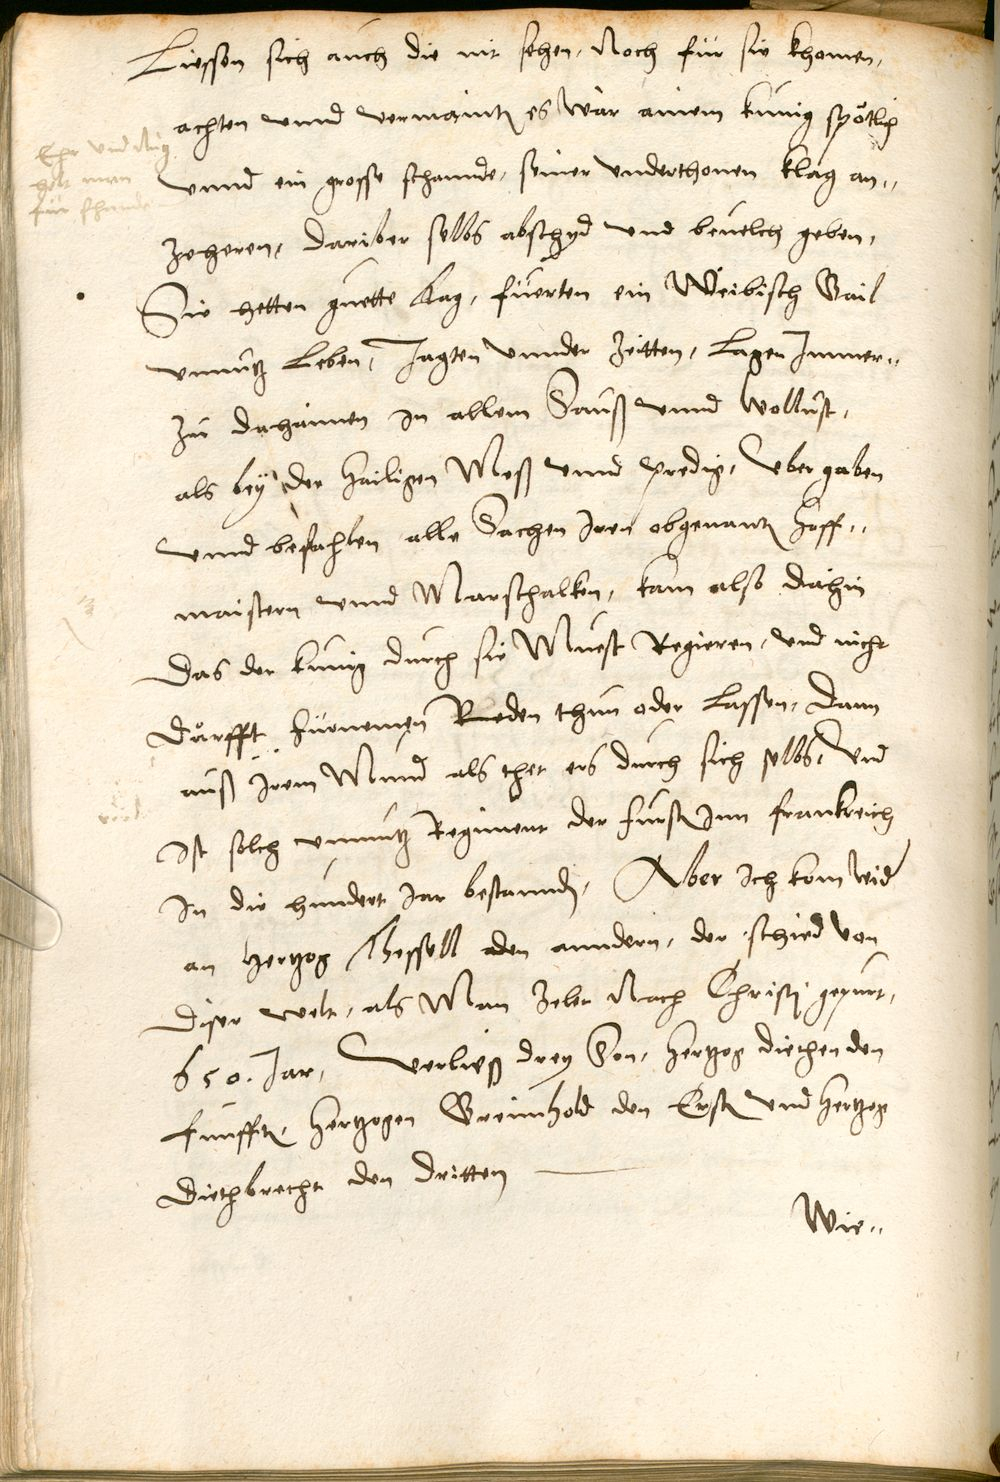 Liessen sich auch die nit sehen, Noch für sie khomen,
achten vnnd vermaintn es wär ainem künig spötlich
vnnd ein grosse schannde, seiner vnderthonen klag an„
Zeheren, dariber selbs abschyd vnd beuelch geben,
Sie hetten guette tag, fuerten ein Weibisch Gail
vnnütz Leben, Jagten vnnder Zeitten, Lagen Jmmer„
zu dahaimen in allem Sauß vnnd Wollust,
als bey der Hailigen Meß vnnd predig, Vbergaben
vnnd befahlen alle Sachen Jren obgenantn Hoff„
maistern vnnd Marschalken, kam also dahin
Das der künig durch sie Muest Regieren, vnd nicht
dörfft fürnemen Reden thun oder Lassen, Dann
auß Jrem Mund als thet ers durch sich selbs, vnd
Ist solch vnnütz Regiment der fürstn Jnn frankreich
In die hundert Jar bestannden, Aber Ich kom wider
an Hertzog Thessell den anndern, der schied von
diser welt, als Man Zelet Nach Christi gepurt,
650. Jar, Verließ drey Son, Hertzog diethen den
funfften, Hertzogen Grimhold den Erstn vnd Hertzog
Diethbrecht den dritten
Wie„
Ehr vnd
helt man
für schande